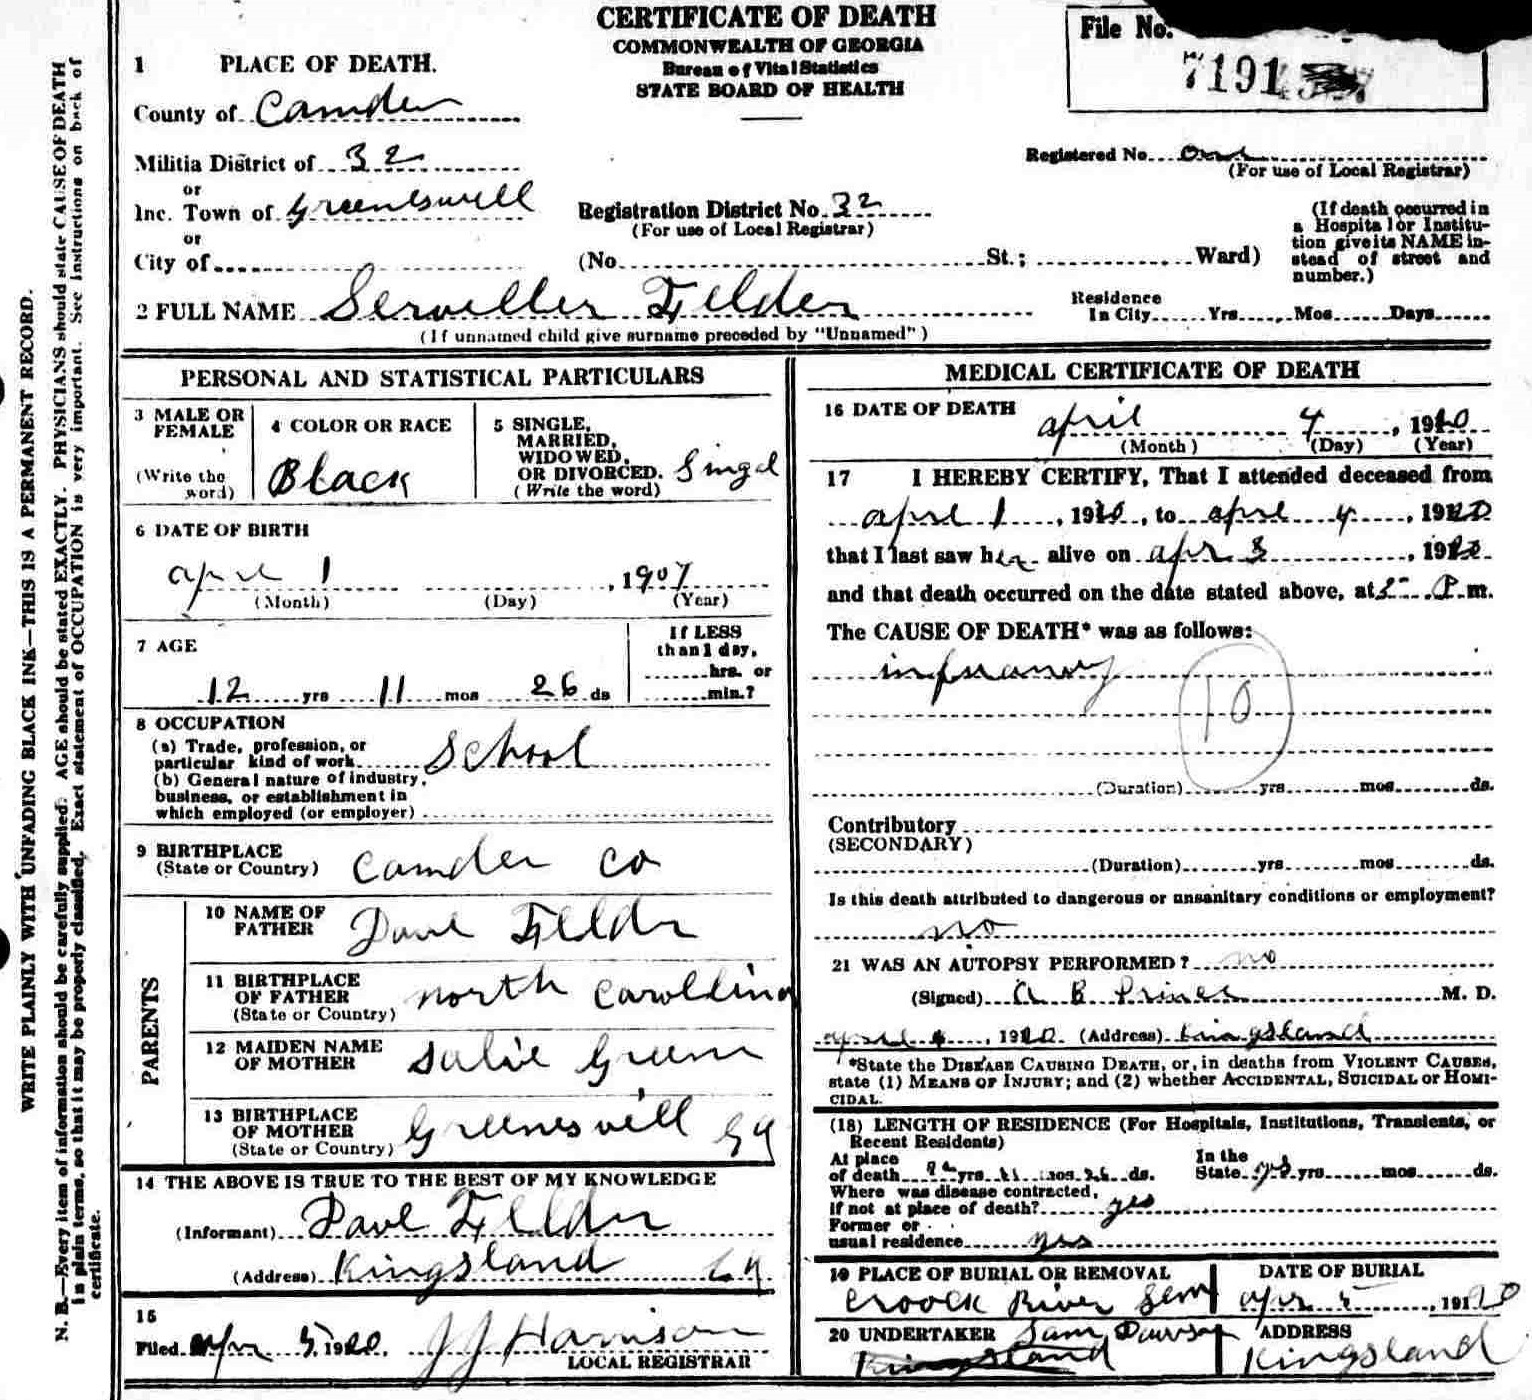 CERTIFICATE OF DEATH
COMMONWEALTH OF GEORGIA
Bureau of Vital Statistics
STATE BOARD OF HEALTH
File No.
7191
1 PLACE OF DEATH.
County of Camden
Militia District of 32
Registered No. one
(For use of Local Registrar)
or
Inc. Town of Greeneswell
Registration District No. 32
(For use of Local Registrar)
(If death occurred in a Hospital or Institution give its NAME instead of street and number.)
or
City of
(No St.; Ward)
2 FULL NAME Felder
Residence In City Yrs Mos Days
(If unnamed child give surname preceded by "Unnamed")
PERSONAL AND STATISTICAL PARTICULARS
3 MALE OR FEMALE
(Write the word)
4 COLOR OR RACE
Black
5 SINGLE, MARRIED, WIDOWED, OR DIVORCED.
(Write the word)
Singel
6 DATE OF BIRTH
1 , 1907
(Month) (Day) (Year)
7 AGE
12 yrs 11 mos 26 ds
If LESS than 1 day, hrs. or min.?
8 OCCUPATION
(a) Trade, profession, or particular kind of work School
(b) General nature of industry, business, or establishment in which employed (or employer)
9 BIRTHPLACE
(State or Country) Camden Co
PARENTS
10 NAME OF FATHER Dave Felder
11 BIRTHPLACE OF FATHER
(State or Country) North
12 MAIDEN NAME OF MOTHER Green
13 BIRTHPLACE OF MOTHER
(State or Country) Greenesvill Ga
14 THE ABOVE IS TRUE TO THE BEST OF MY KNOWLEDGE
(Informant) Dave Felder
(Address) Kingsland Ga
15
Filed Apr 5, 1920. J J Harrison
LOCAL REGISTRAR
MEDICAL CERTIFICATE OF DEATH
16 DATE OF DEATH
April 4, 1920
(Month) (Day) (Year)
17 I HEREBY CERTIFY, That I attended deceased from
1, 1920, to 4, 1920
that I last saw her alive on apr 3, 1920
and that death occurred on the date stated above, at P. m.
The CAUSE OF DEATH* was as follows:
10
(Duration) yrs mos ds.
Contributory
(SECONDARY)
(Duration) yrs mos ds.
Is this death attributed to dangerous or unsanitary conditions or employment?
no
21 WAS AN AUTOPSY PERFORMED? no
(Signed) A B M. D.
4, 1920 (Address) Kingsland
*State the DISEASE CAUSING DEATH, or, in deaths from VIOLENT CAUSES, state (1) MEANS OF INJURY; and (2) whether ACCIDENTAL, SUICIDAL or HOMICIDAL.
(18) LENGTH OF RESIDENCE (For Hospitals, Institutions, Transients, or Recent Residents)
At place of death yrs 11 mos 26 ds.
In the State yrs mos ds.
Where was disease contracted, If not at place of death? yes
Former or usual residence yes
19 PLACE OF BURIAL OR REMOVAL
River
DATE OF BURIAL
apr 5, 1920
20 UNDERTAKER Sam
Kingsland
ADDRESS
Kingsland
WRITE PLAINLY WITH UNFADING BLACK INK—THIS IS A PERMANENT RECORD.
N. B.—Every item of information should be carefully supplied. AGE should be stated EXACTLY. PHYSICIANS should state CAUSE OF DEATH in plain terms, so that it may be properly classified. Exact statement of OCCUPATION is very important. See instructions on back of certificate.